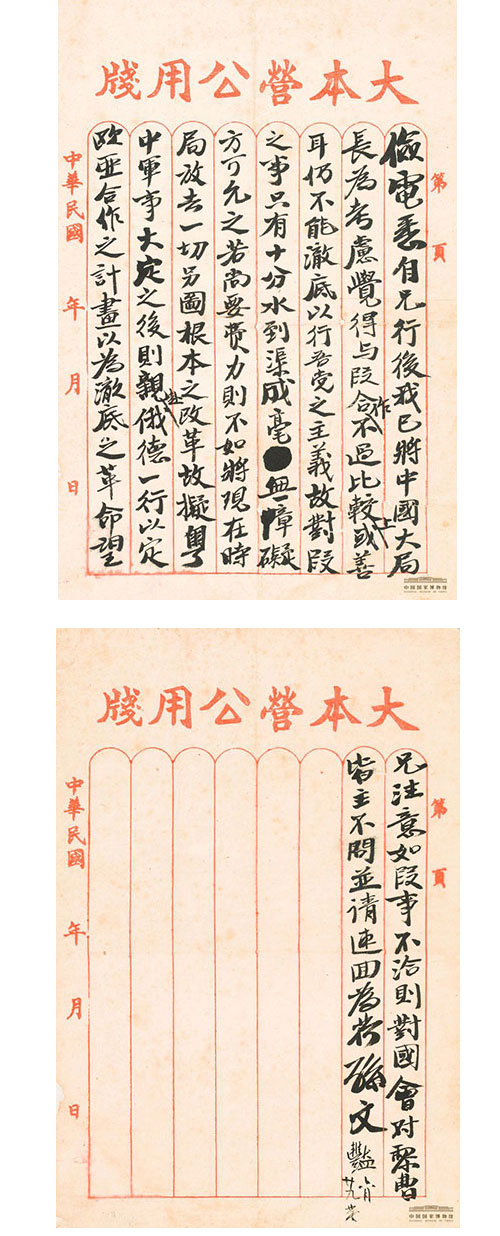 大本營公用牋
第 頁
儉電悉自兄行後我已將中國大局
長為考慮覺得与段合作不過比較上或善
耳仍不能澈底以行吾党之主義故對段
之事只有十分水到渠成毫無障礙
方可允之若尚要費力則不如將現在時
局放去一切另圖根本之改革故擬粵
中軍事大定之後則親赴俄德一行以定
欧亞合作之計畫以為澈底之革命望
中華民國 年 月 日
中国国家博物馆
大本營公用牋
第 頁
兄注意如段事不洽則對國會对黎曹
皆主不問並请速回為荷孫文 豔
廿九
中華民國 年 月 日
中国国家博物馆